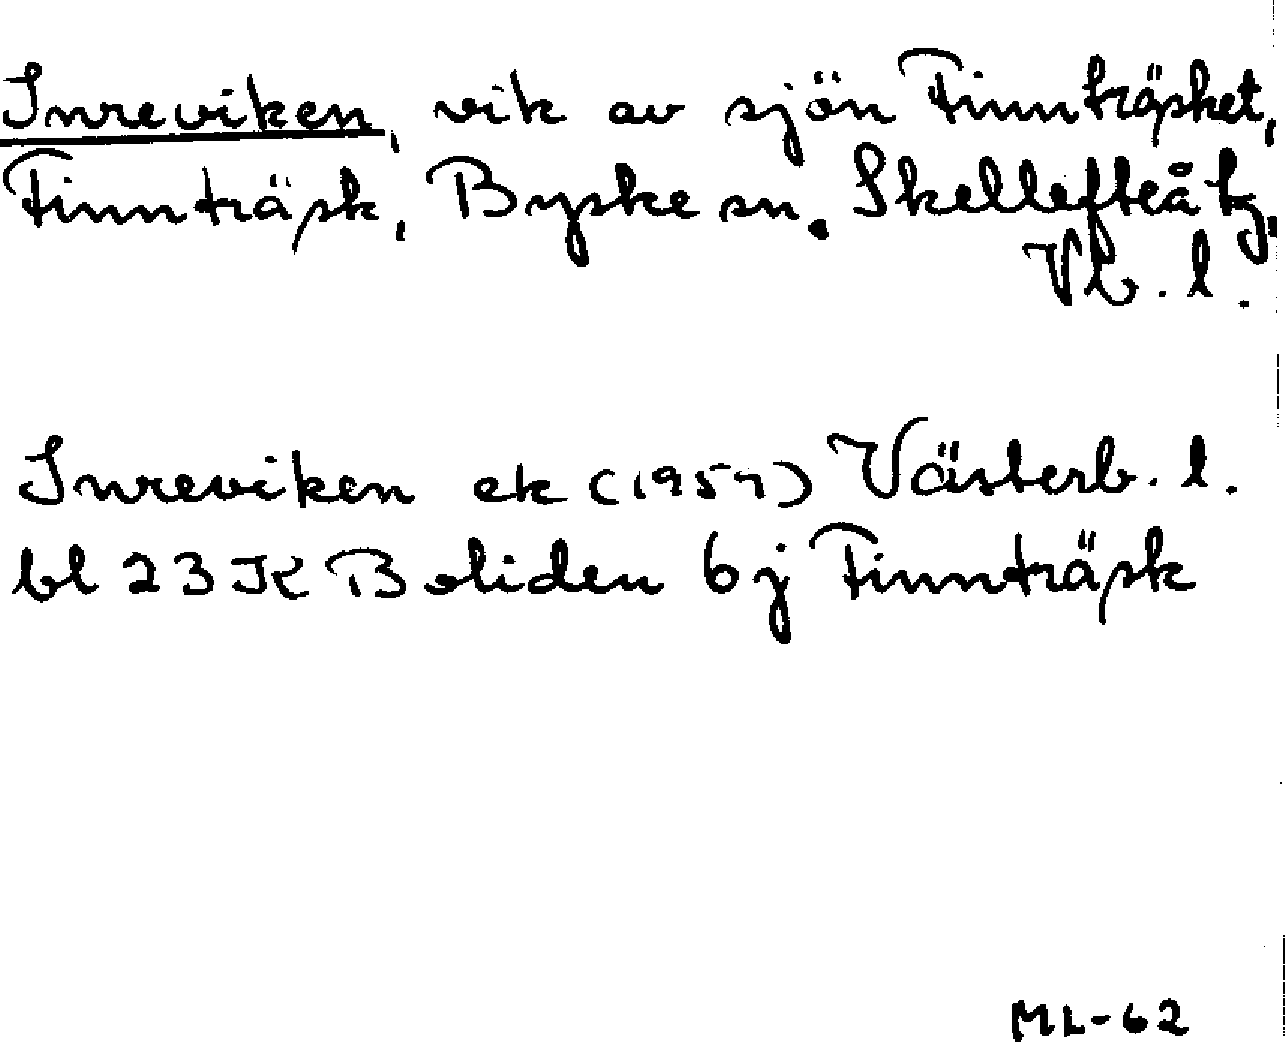 Inreviken, vik av sjön Finnträsket,
Finnträsk, Byske sn. Skellefteå tg.
Vb. l.
Inreviken ek (1957) Västerb. l.
bl 23 K Boliden 6j Finnträsk
ML-62